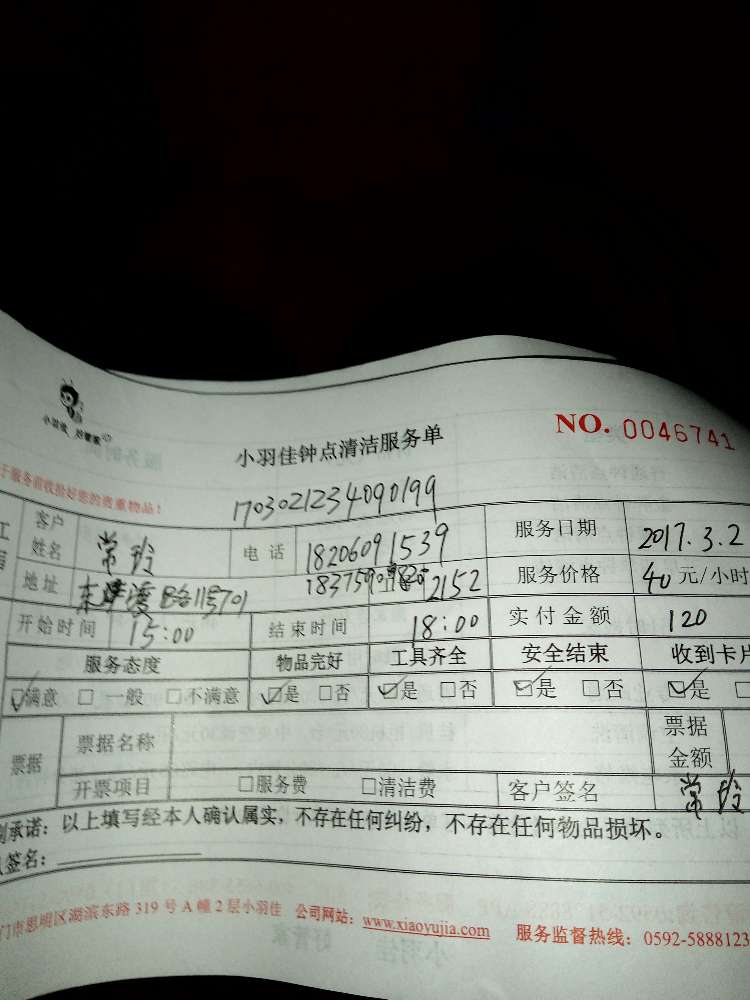 小羽佳 好管家
小羽佳钟点清洁服务单
NO. 0046741
于服务前收拾好您的贵重物品！
1703021234090199
客户姓名 常玲 电话 18206091539 服务日期 2017.3.2
地址 路11号701 2152 服务价格 40元/小时
开始时间 15:00 结束时间 18:00 实付金额 120
服务态度 物品完好 工具齐全 安全结束 收到卡片
☑满意 □一般 □不满意 ☑是 □否 ☑是 □否 ☑是 □否 ☑是 □
票据 票据名称 票据金额
开票项目 □服务费 □清洁费 客户签名 常玲
承诺：以上填写经本人确认属实，不存在任何纠纷，不存在任何物品损坏。
签名：
门市思明区湖滨东路 319 号 A 幢 2 层小羽佳 公司网站：www.xiaoyujia.com 服务监督热线：0592-5888123